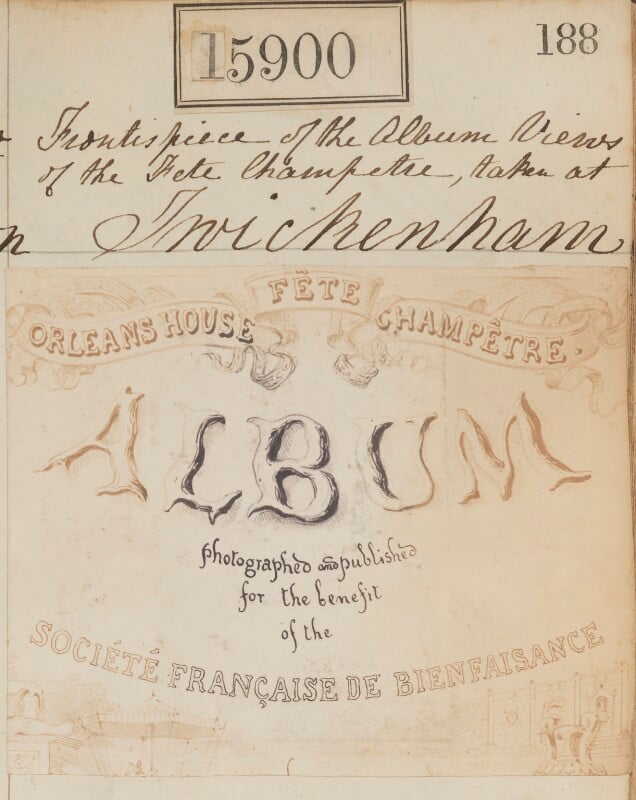 15900
188
Frontispiece of the Album Views
of the Fete Champetre, taken at
n Twickenham
FÊTE
ORLEANS HOUSE CHAMPÊTRE.
ALBUM
photographed and published
for the benefit
of the
SOCIÉTÉ FRANÇAISE DE BIENFAISANCE